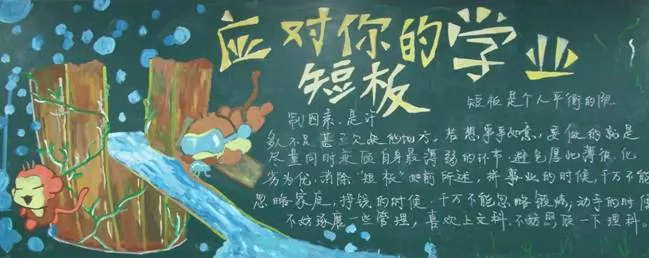 应对你的学业
短板
短板是个人平衡的限
制因素，是许
多人不足甚至欠缺的地方。若想事事如意，要做的就是
尽量同时兼顾自身最薄弱的环节，避免厚此薄彼，化
劣为优，消除“短板”如前所述，拼事业的时候，千万不能
忽略家庭，挣钱的时候，千万不能忽略锻炼，动手的时候
不妨琢磨一些管理，喜欢上文科，不妨照顾一下理科。